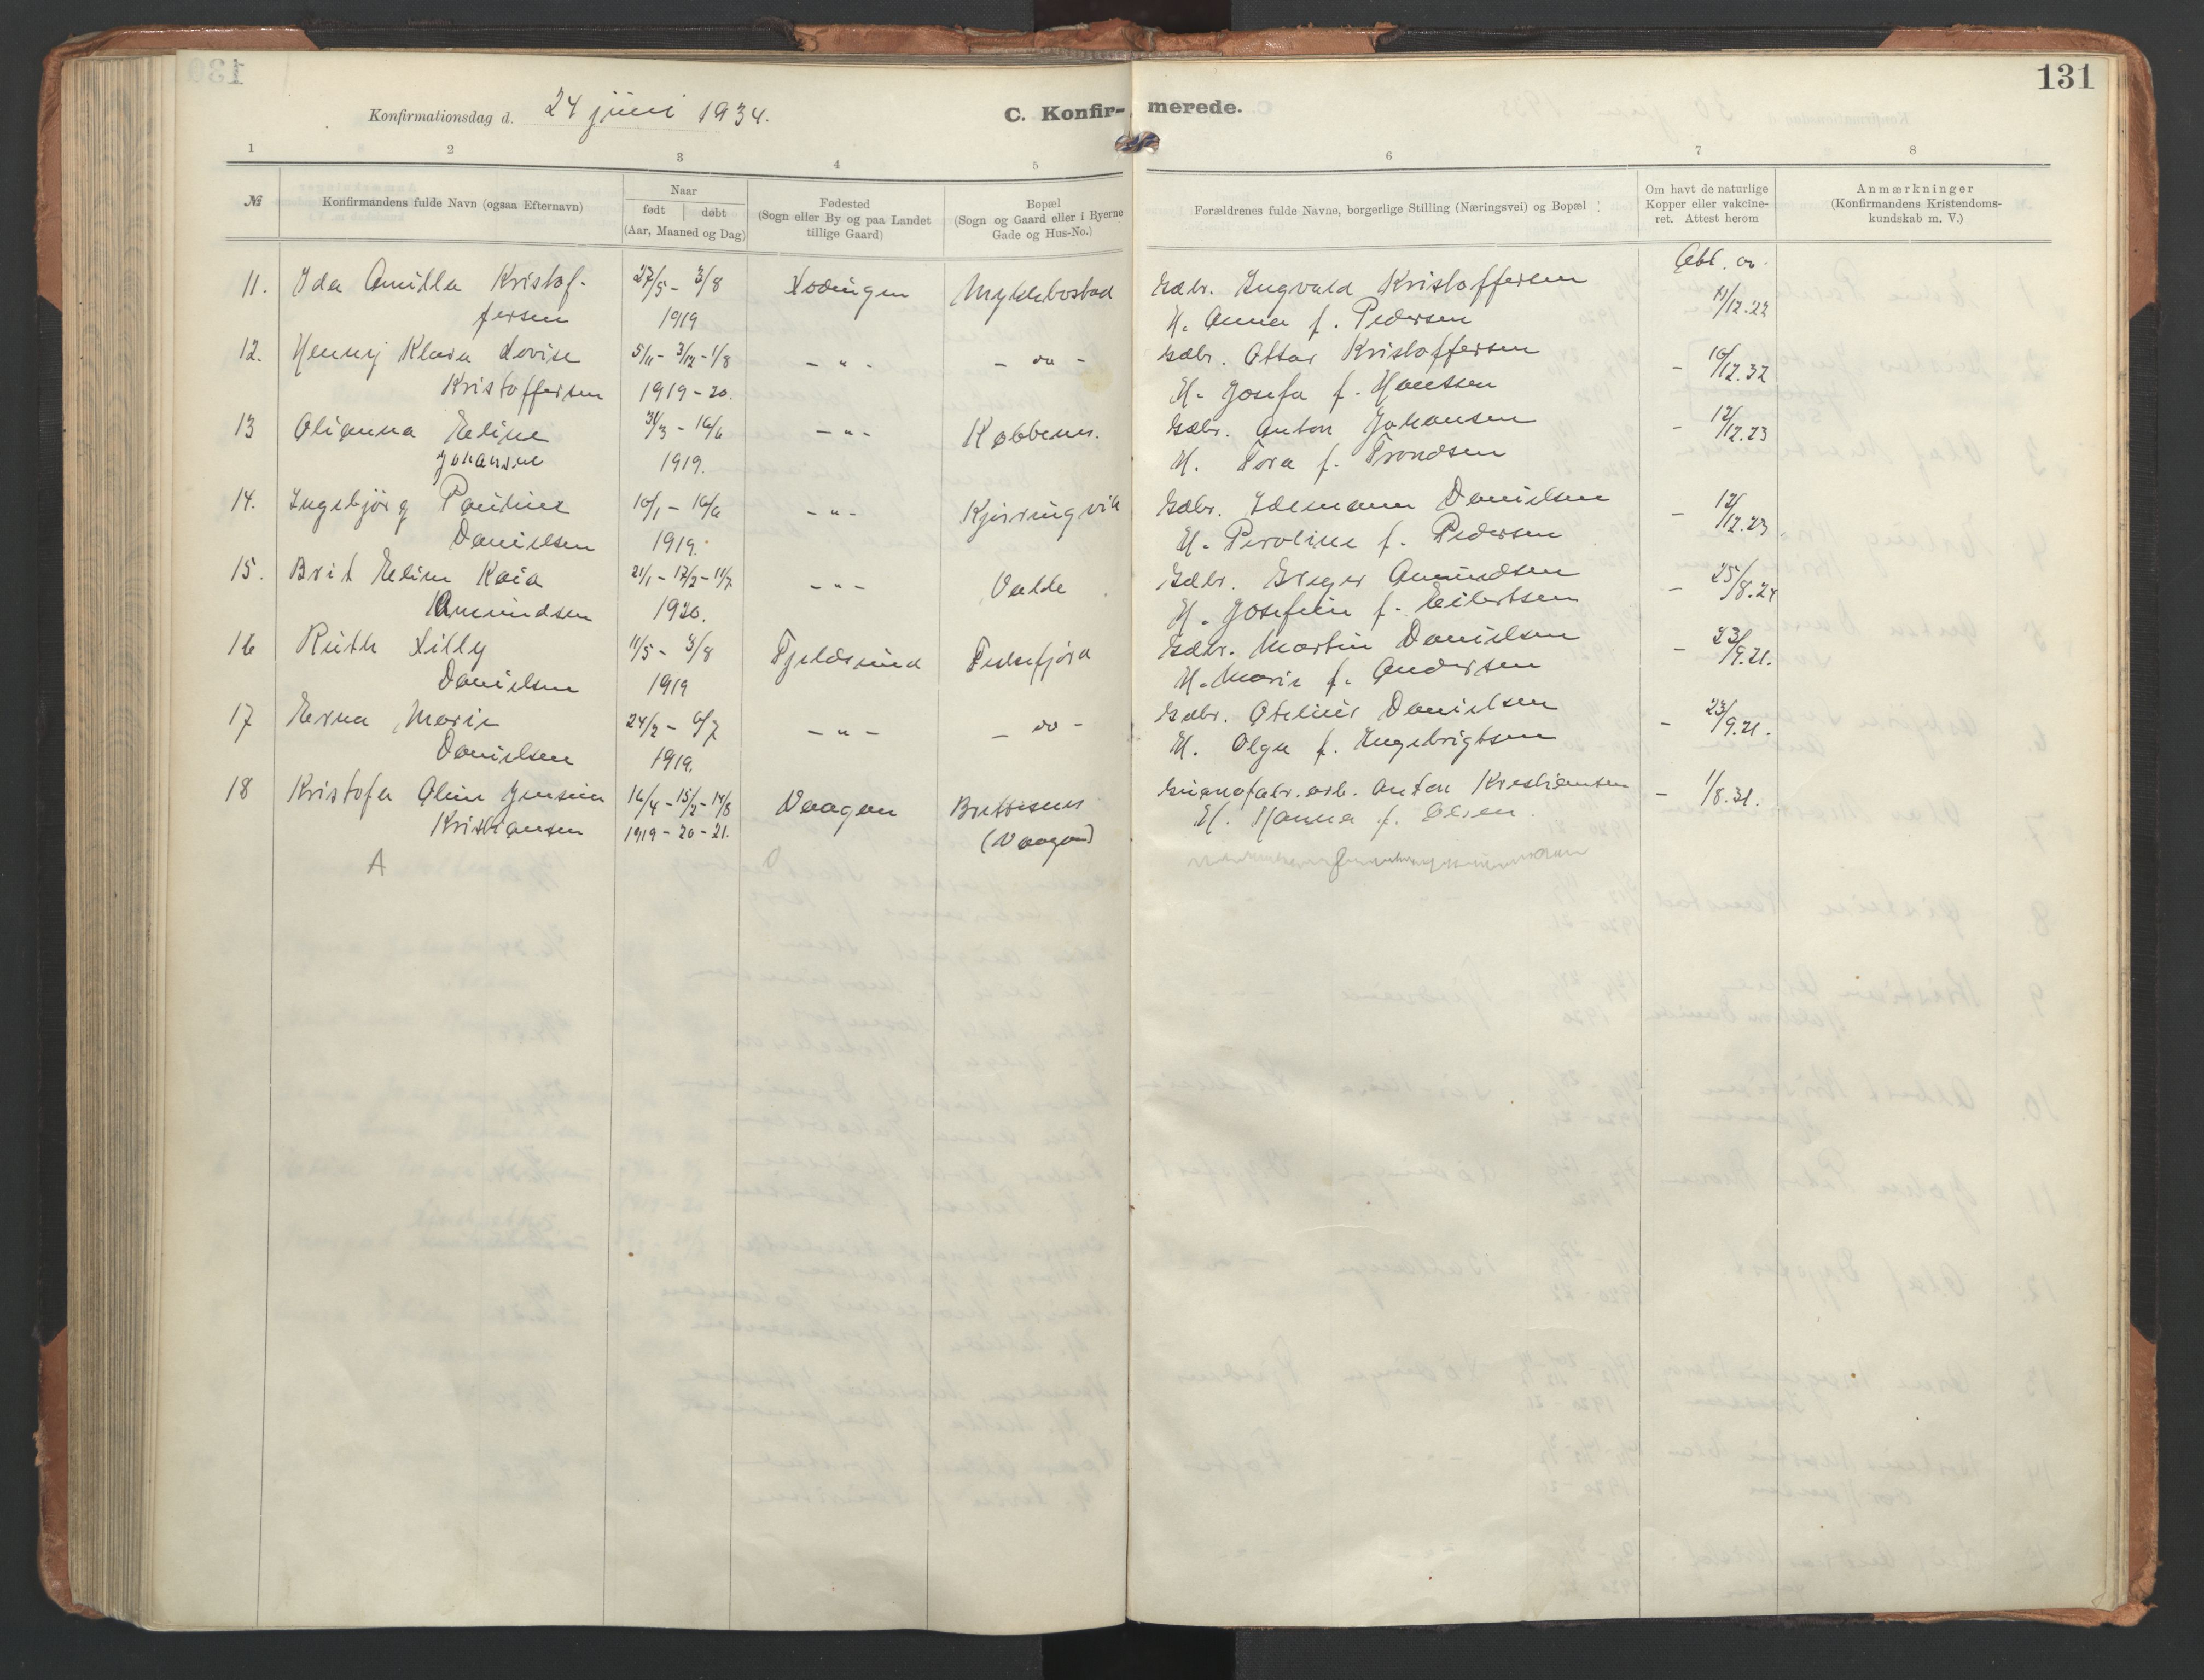 131
Konfirmationsdag d. 24 juni 1934.
C. Konfir- merede.
1 2 3 4 5 6 7 8
№
Konfirmandens fulde Navn (ogsaa Efternavn)
Naar
født | døbt
(Aar, Maaned og Dag)
Fødested
(Sogn eller By og paa Landet
tillige Gaard)
Bopæl
(Sogn og Gaard eller i Byerne
Gade og Hus-No.)
Forældrenes fulde Navne, borgerlige Stilling (Næringsvei) og Bopæl
Om havt de naturlige
Kopper eller vakcine-
ret. Attest herom
Anmærkninger
(Konfirmandens Kristendoms-
kundskab m. V.)
11. Ida Amilla Kristof- 27/5 - 3/8 Lødingen Myklebostad Gbr. Ingvald Kristoffersen
fersen 1919 H. Anna f. Pedersen 11/12.22
12. Henny Klara Lovise 5/11 - 3/12 - 1/8 - " - - do - Gbr. Ottar Kristoffersen - 16/12.32
Kristoffersen 1919 - 20. H. Josefa f. Hanssen
13 Olianna Eline 31/3 - 16/6 - " - Kobbenes. Gbr. Anton Johansen - 12/12.23
Johansen 1919. H. Tora f. Trondsen
14. Ingebjørg Pauline 10/1 - 16/6 - " - Kjerringvik Gbr. Edemann Danielsen - 12/12.23
Danielsen 1919. H. Peroline f. Pedersen
15. Brit Eline Kaia 21/1 - 17/2 - 11/7 - " - Valde Gbr. Greger Amundsen - 25/8.24
Amundsen 1920. H. Josefine f. Eilertsen
16 Ruth Lilly 11/5 - 3/8 Fjeldsund Fiskefjord Gbr. Martin Danielsen - 23/9.21.
Danielsen 1919 H. Marie f. Andersen
17 Erna Marie 24/2 - 6/7 - " - - do - Gbr. Otelius Danielsen - 23/9.21.
Danielsen 1919. H. Olga f. Ingebrigtsen
18 Kristofa Oline Jensine 16/4 - 15/2 - 14/8 Vaagan Brettesnes Guanofabr.arb. Anton Kristiansen - 1/8.31.
Kristiansen 1919 - 20 - 21. (Vaagan) H. Hanna f. Olsen
A